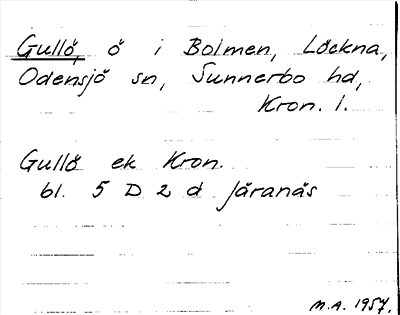 Gullö, ö i Bolmen, Löckna,
Odensjö sn, Sunnerbo hd,
Kron. l.
Gullö ek Kron.
bl. 5 D 2 d Järanäs
M.A. 1957.